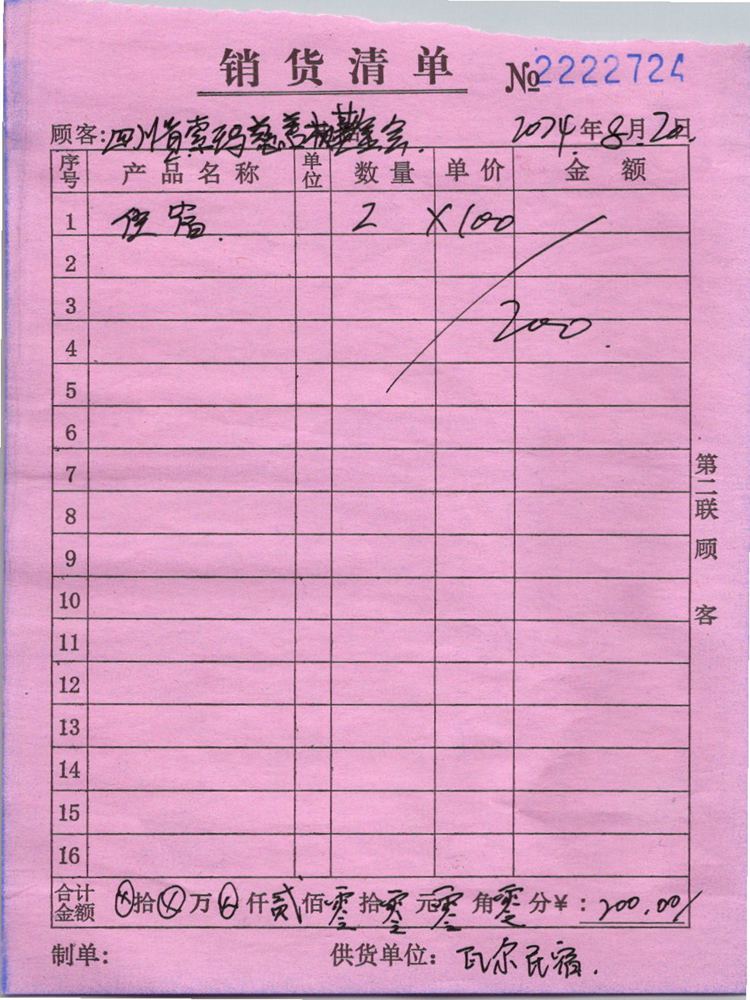 销货清单
№2222724
顾客:四川省索玛慈善基金会.
2024年8月20日
序号 产品名称 单位 数量 单价 金额
1 住宿. 2 ×100
2
3
200.
4
5
6
7
8
9
10
11
12
13
14
15
16
合计金额 ⊗拾⊗万⊗仟贰佰零拾零元零角零分¥:200.00/
制单: 供货单位:瓦尔民宿.
第二联 顾客